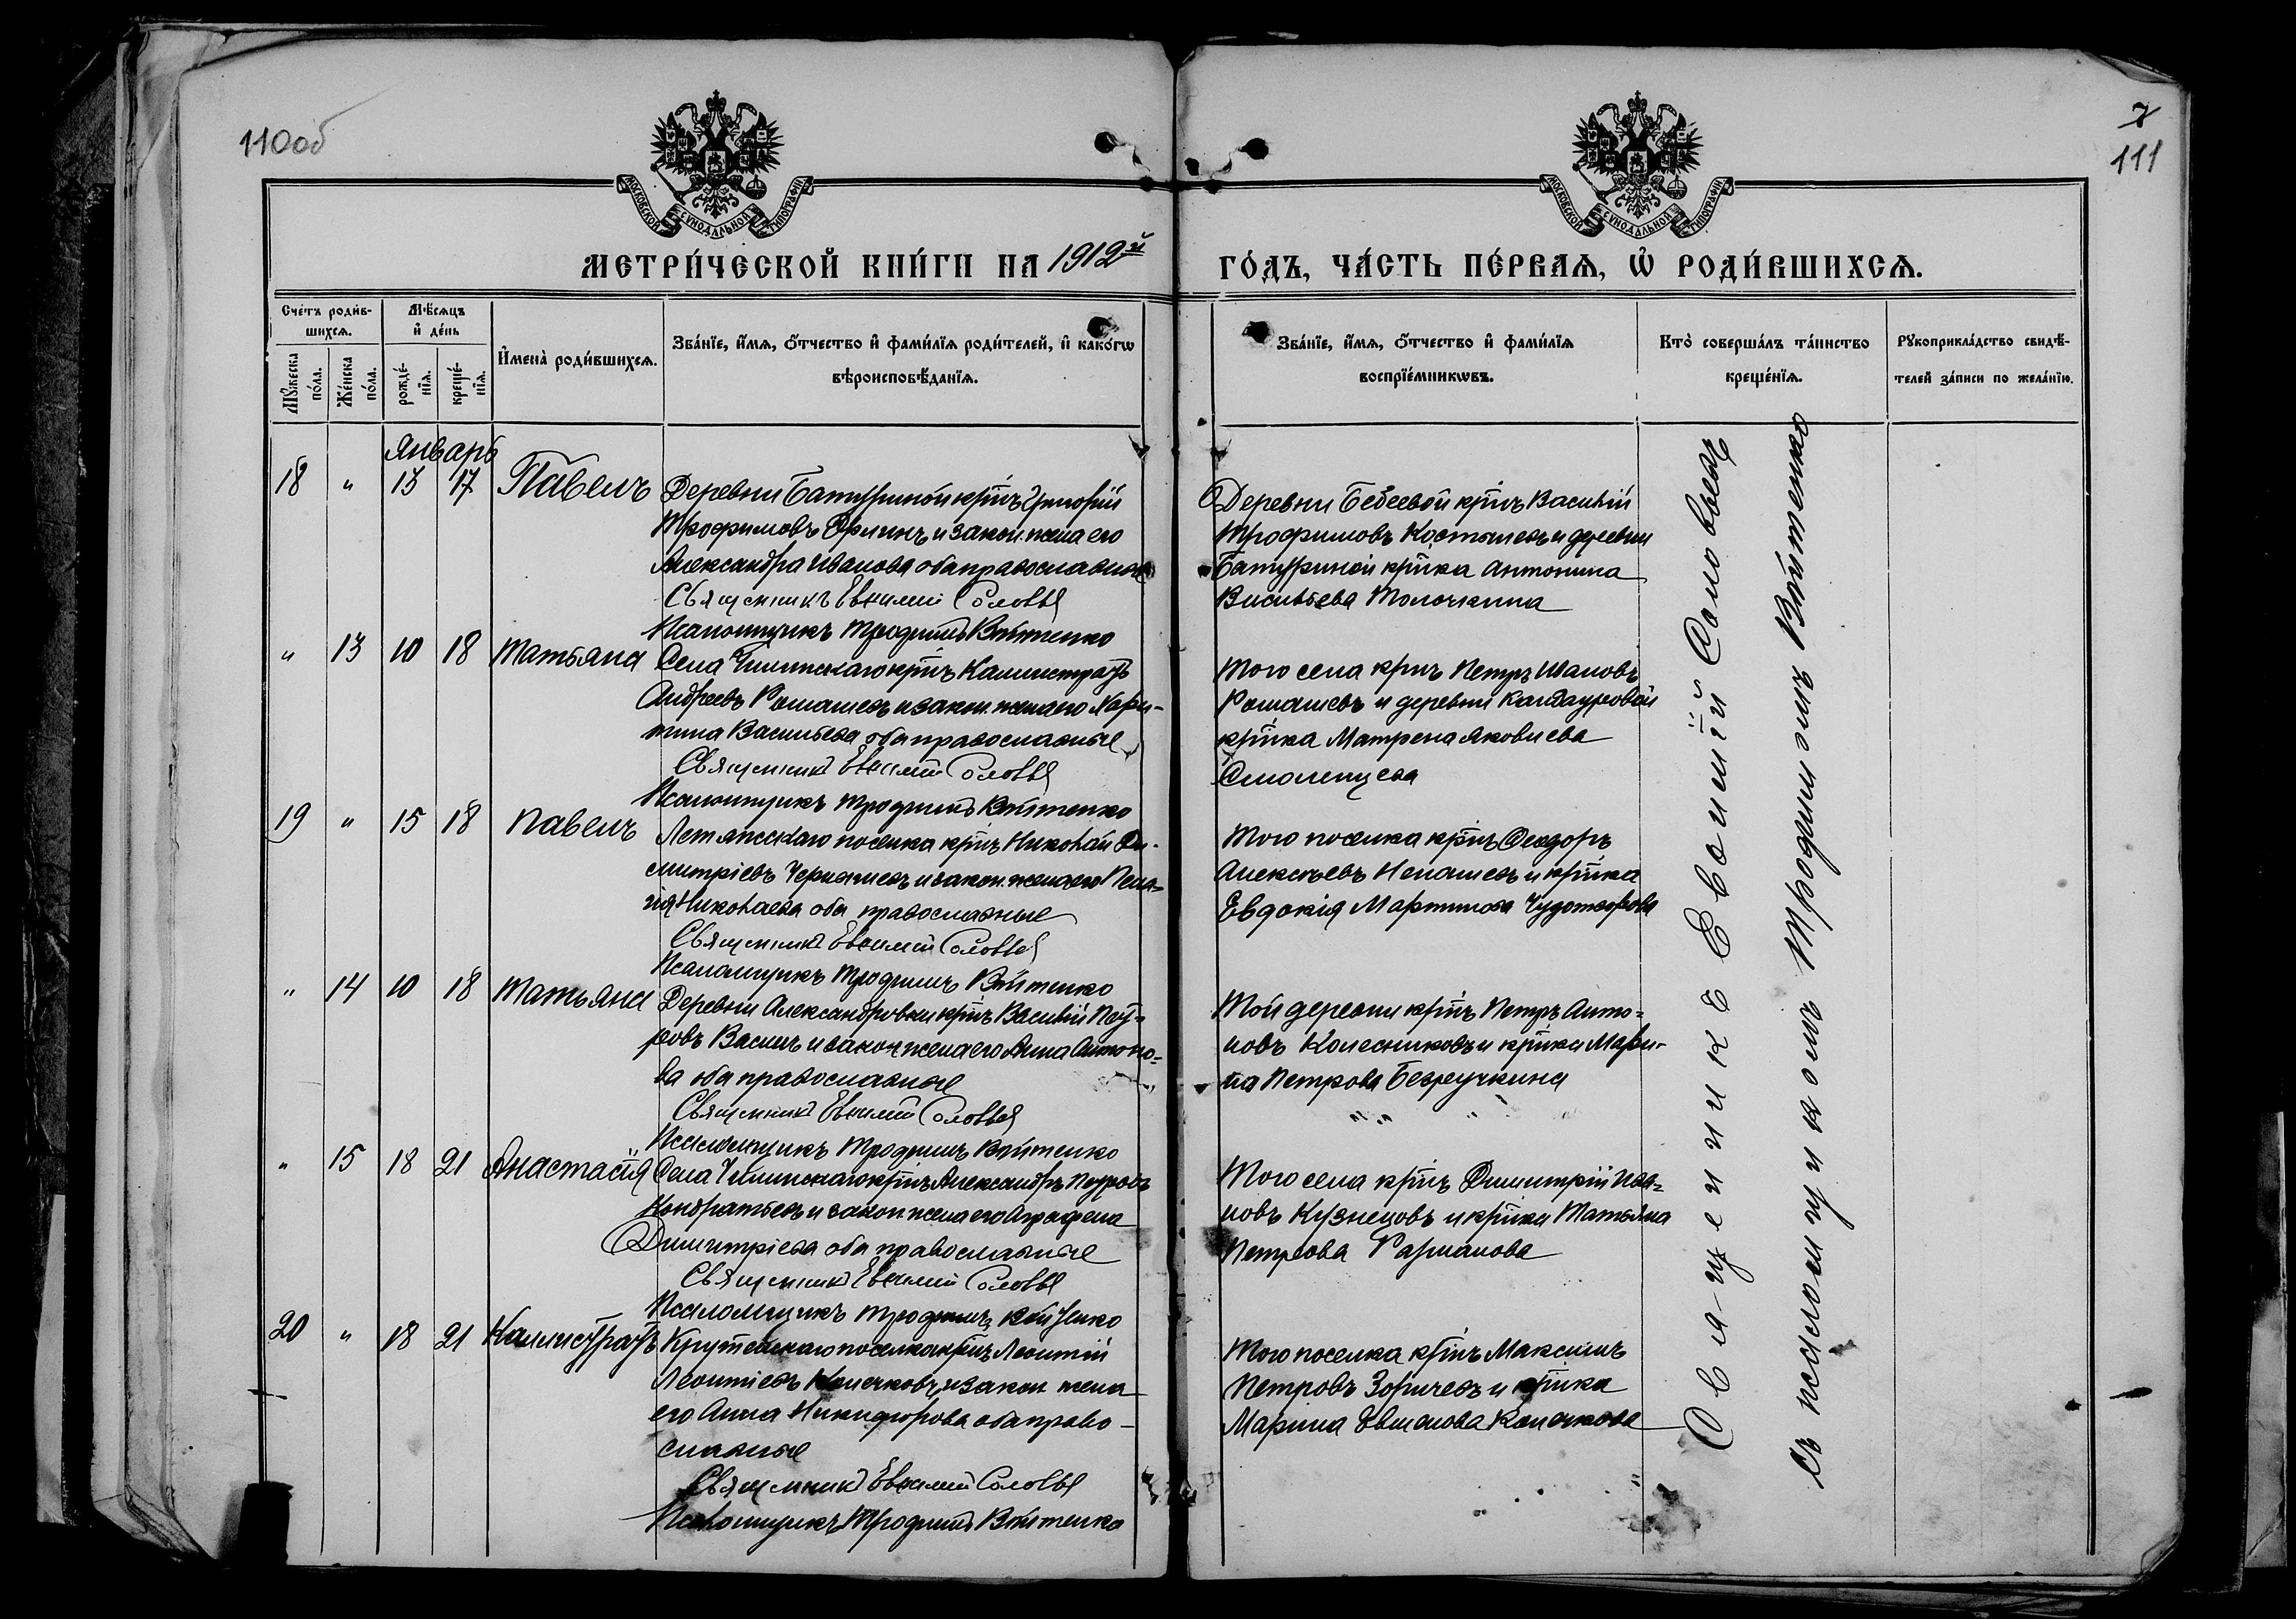 110об
7
111
МОСКОВСКОЙ СѴНОДАЛЬНОЙ ТИПОГРАФІИ
МОСКОВСКОЙ СѴНОДАЛЬНОЙ ТИПОГРАФІИ
МЕТРИ́ЧЕСКОЙ КНИ́ГИ НА 1912й
ГО́ДЪ, ЧА́СТЬ ПЕ́РВАѦ, Ѽ РОДИ́ВШИХСѦ.
Сче́тъ роди́в-
шихсѧ.
Мѣ́сѧцъ
и҆ де́нь
Мꙋ́жеска по́ла.
Же́нска по́ла.
рожде́-
нїѧ.
креще́-
нїѧ.
И҆мена̀ роди́вшихсѧ.
Зва́нїе, и҆́мѧ, ѻ҆́тчество и҆ фами́лїѧ роди́телей, и҆ како́гѡ
вѣроисповѣ́данїѧ.
Зва́нїе, и҆́мѧ, ѻ҆́тчество и҆ фами́лїѧ
воспрїе́мникѡвъ.
Кто̀ соверша́лъ та́инство
креще́нїѧ.
Рꙋкоприкла́дство свидѣ́-
телей за́писи по жела́нїю.
Январь
18 " 13 17 Павелъ
Деревни Батуриной крнъ Григорій
Трофимовъ и закон. жена его
Александра Иванова оба православные
Священникъ Евѳимій Соловьев
Псаломщикъ Трофимъ Войтенко
Деревни Бебеевой крнъ Василій
Трофимовъ Костылевъ и деревни
Батуриной крнка Антонина
Васильева Толочкина
" 13 10 18 Татьяна
Села крнъ Каллистратъ
Андреевъ Ромашевъ и закон. жена его Хари-
тина Васильева оба православные
Священникъ Евѳимій Соловьев
Псаломщикъ Трофимъ Войтенко
Того села крнъ Петръ Ивановъ
Ромашевъ и деревни
крнка Матрена Яковлева
Смоленцева
19 " 15 18 Павелъ
Летяжскаго поселка крнъ Николай Ди-
митріевъ Чернышевъ и закон. жена его Пела-
гія Николаева оба православные
Священникъ Евѳимій Соловьев
Псаломщикъ Трофимъ Войтенко
Того поселка крнъ Ѳеодоръ
Алексѣевъ и крнка
Евдокія Мартинова Чудотворова
" 14 10 18 Татьяна
Деревни Александровки крнъ Василій Пет-
ровъ и закон жена его Анна Антоно-
ва оба православные
Священникъ Евѳимій Соловьев
Псаломщикъ Трофимъ Войтенко
Той деревни крнъ Петръ Анто-
новъ Колесниковъ и крнка Мари-
на Петрова Безручкина
" 15 18 21 Анастасія
Села крнъ Александръ Петровъ
Кондратьевъ и закон. жена его Агафена
Димитріева оба православные
Священникъ Евѳимій Соловьев
Псаломщикъ Трофимъ Войтенко
Того села крнъ Димитрій Ива-
новъ Кузнецовъ и крнка Татьяна
Петрова Рарманова
20 " 18 21 Каллистратъ
поселка крнъ Леонтій
Леонтіевъ Колечковъ и закон жена
его Анна Никифорова оба право-
славные
Священникъ Евѳимій Соловьев
Псаломщикъ Трофимъ Войтенко
Того поселка крнъ Максимъ
Петровъ Зоричевъ и крнка
Марина Колечкова
Священикъ Евѳимій Соловьевъ
съ псаломщикомъ Трофимомъ Войтенко